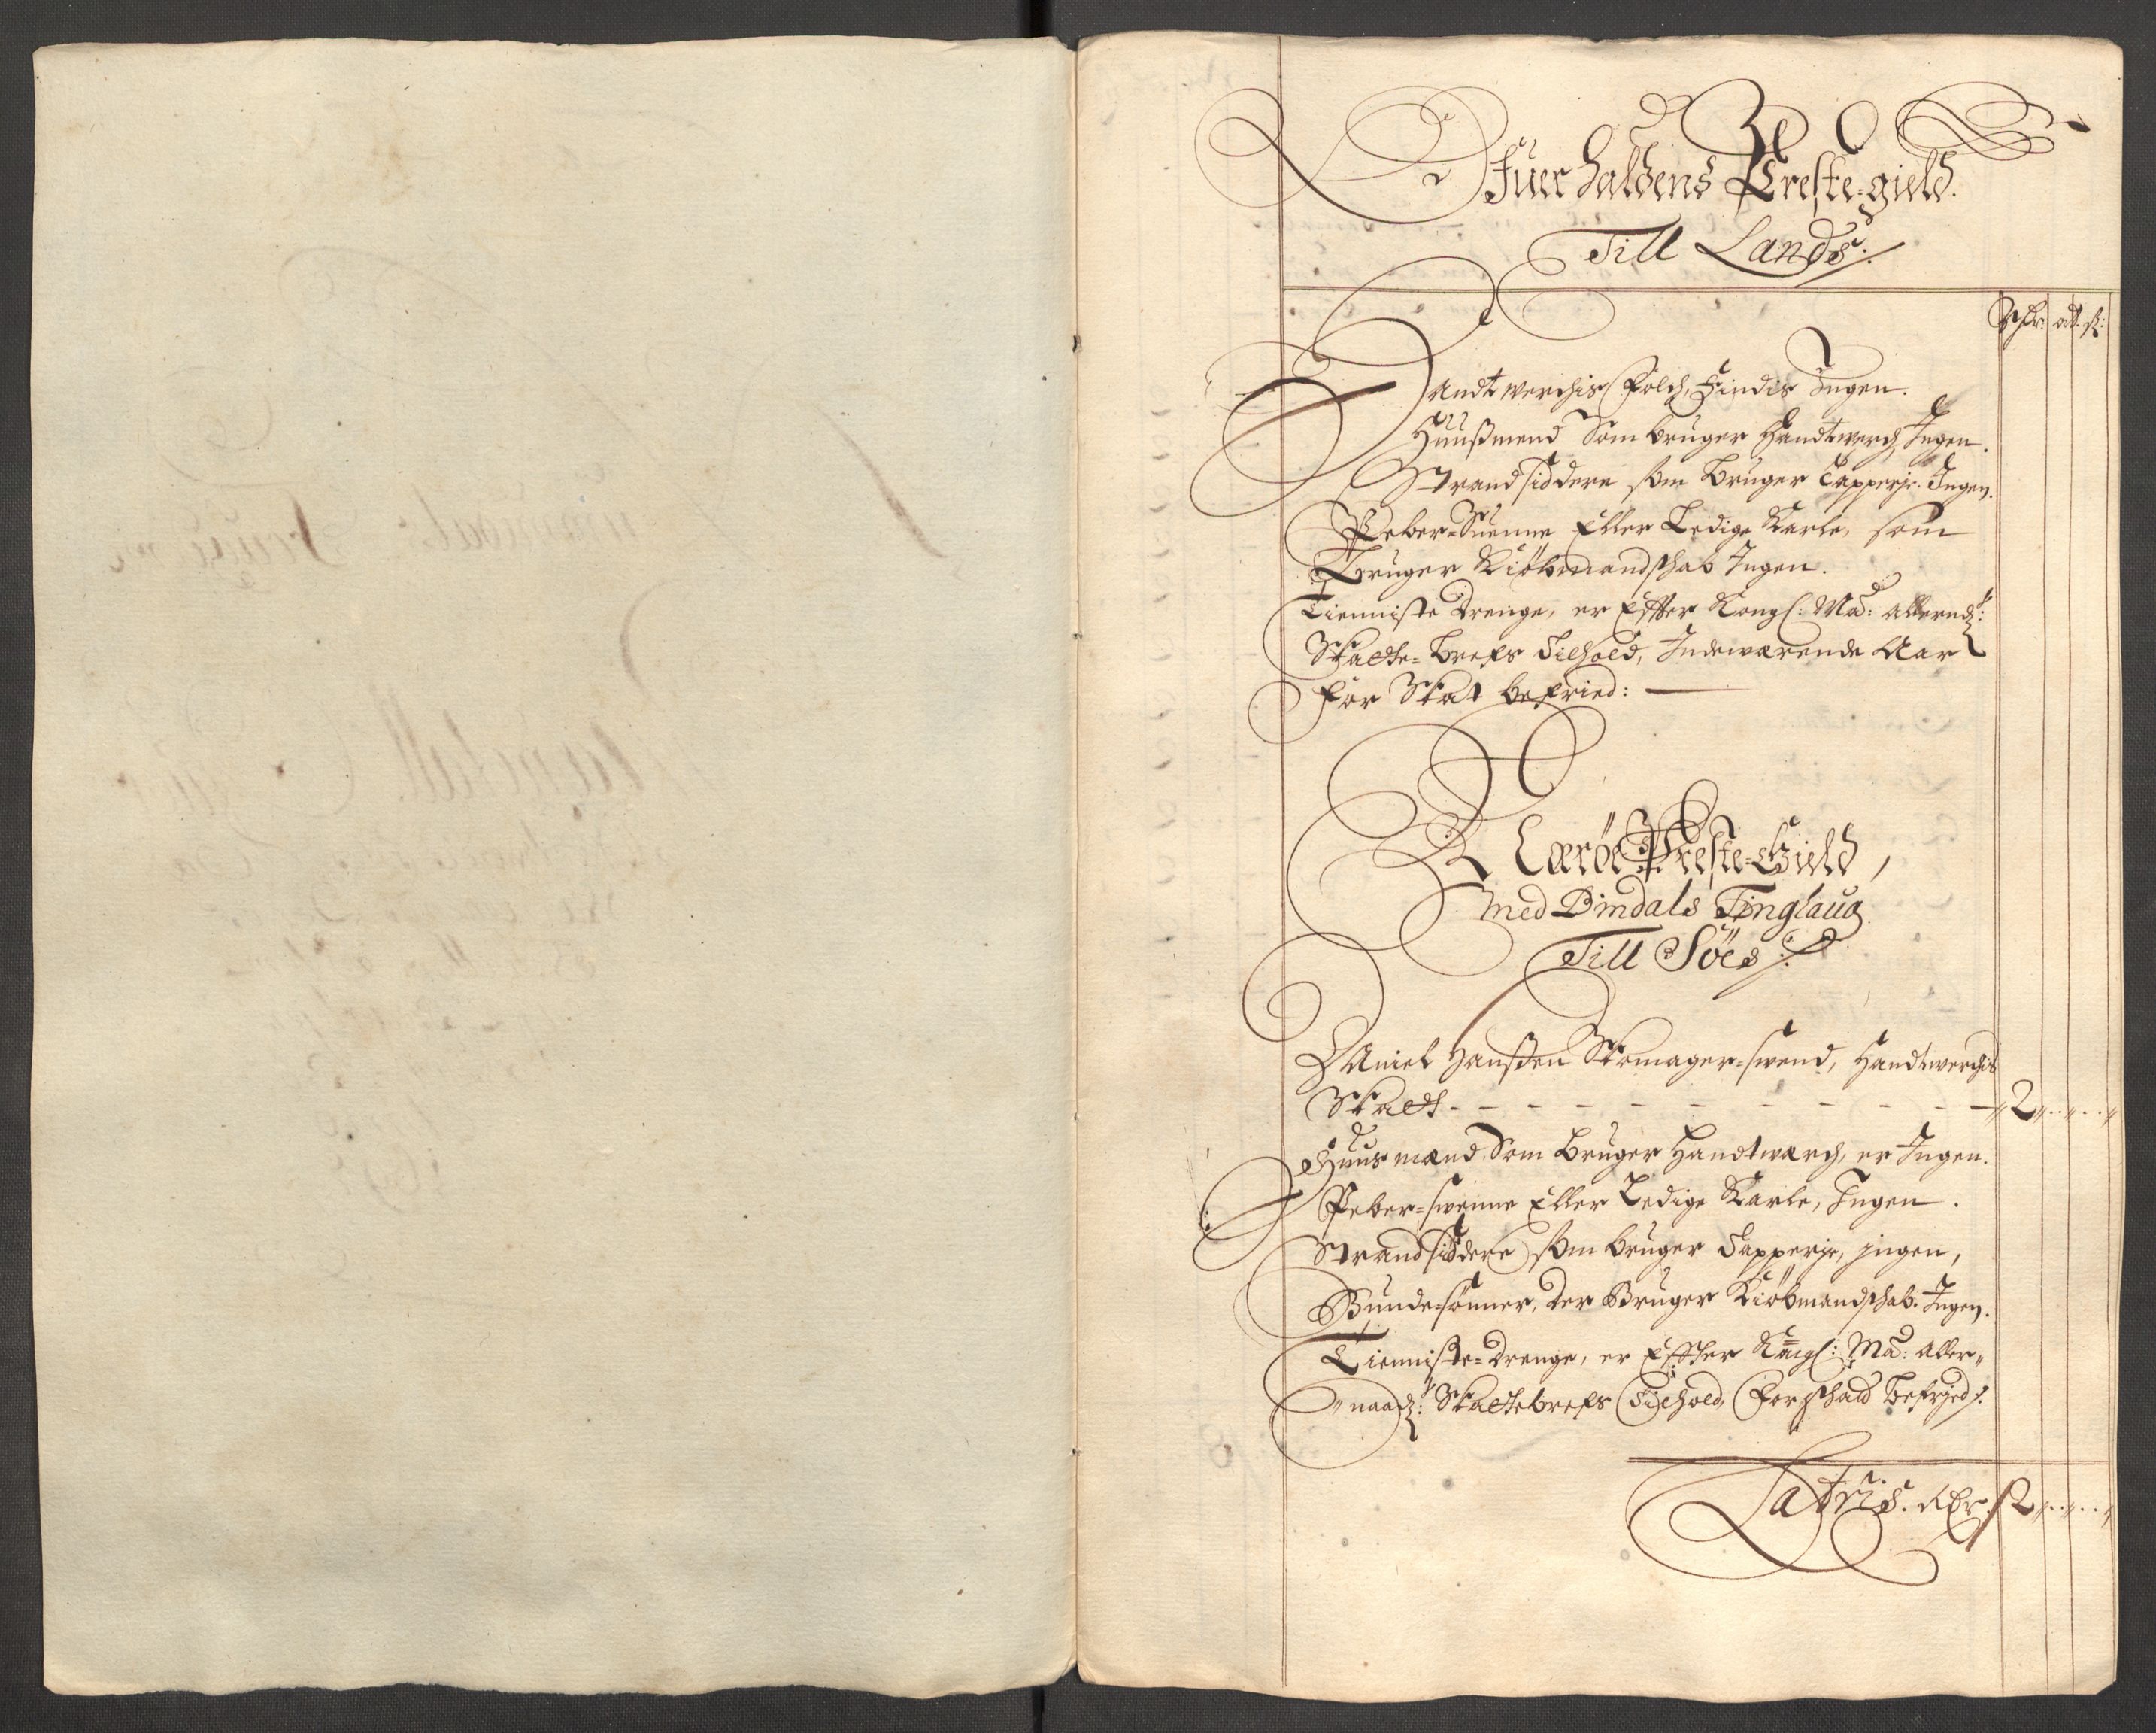 Ofuer haldens Preste-gield.
Till Lands:
Rdr: ort. ß:
Handtverchis Folch, Findis Ingen.
Huußmend Som bruger Handtwerch Ingen.
Strandsiddere som Bruger Tapperje. Ingen.
Peber-Suenne Eller Ledige Karle, som
Bruger Kiöbmandschab Ingen.
Tienniste Drenge, er Effter Kongl: Ma: allernd:
Skatte-brefs Tilhold, Indewærende Aar
for Skat befried:
Nærøe Preste-Gield,
Med Bindals Tinglaug
Till Söes
Daniel Hanßen Skomager-swend, Handtwerchis
Skatt - - - - - - - - - - 2
Huusmænd Som Bruger Handtwerch, er Ingen.
Peber-swenne Eller Ledige Karle, Ingen.
Strandsiddere som bruger Tapperje, jngen,
Bunde-sönner, der Bruger Kiöbmandschab. Ingen.
Tienniste-Drenge, er Effter Kongl: Ma: Aller-
naad: Skattebrefs Tilhold, For schatt befrjed.
Lateris. Rdr. 2